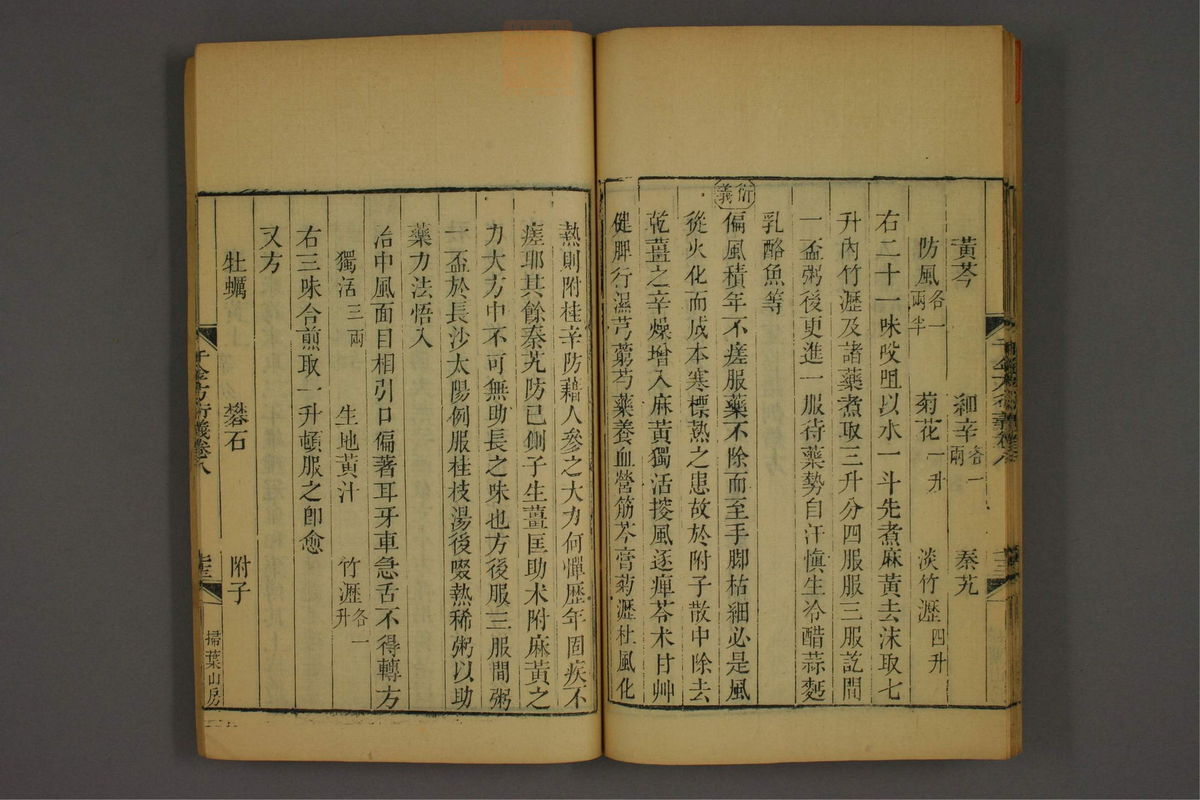 黃芩　細辛各一兩　秦艽
防風各一兩半　菊花一升　淡竹瀝四升
右二十一味㕮咀以水一斗先煮麻黃去沫取七
升內竹瀝及諸藥煮取三升分四服服三服訖間
一盃粥後更進一服待藥勢自汗慎生冷醋蒜麪
乳酪魚等
衍義
偏風積年不瘥服藥不除而至手腳枯細必是風
從火化而成本寒標熱之患故於附子散中除去
乾薑之辛燥增入麻黃獨活搜風逐痺苓朮甘艸
健脾行濕芎藭芍藥養血營筋芩膏菊瀝杜風化
熱則附桂辛防藉人參之大力何憚歷年固疾不
瘥耶其餘秦艽防已側子生薑匡助朮附麻黃之
力大方中不可無助長之味也方後服三服間粥
一盃於長沙太陽例服桂枝湯後啜熱稀粥以助
藥力法悟入
治中風面目相引口偏著耳牙車急舌不得轉方
獨活三兩　生地黃汁　竹瀝各一升
右三味合煎取一升頓服之卽愈
又方
牡蠣　礬石　附子
千金方衍義卷八
掃葉山房